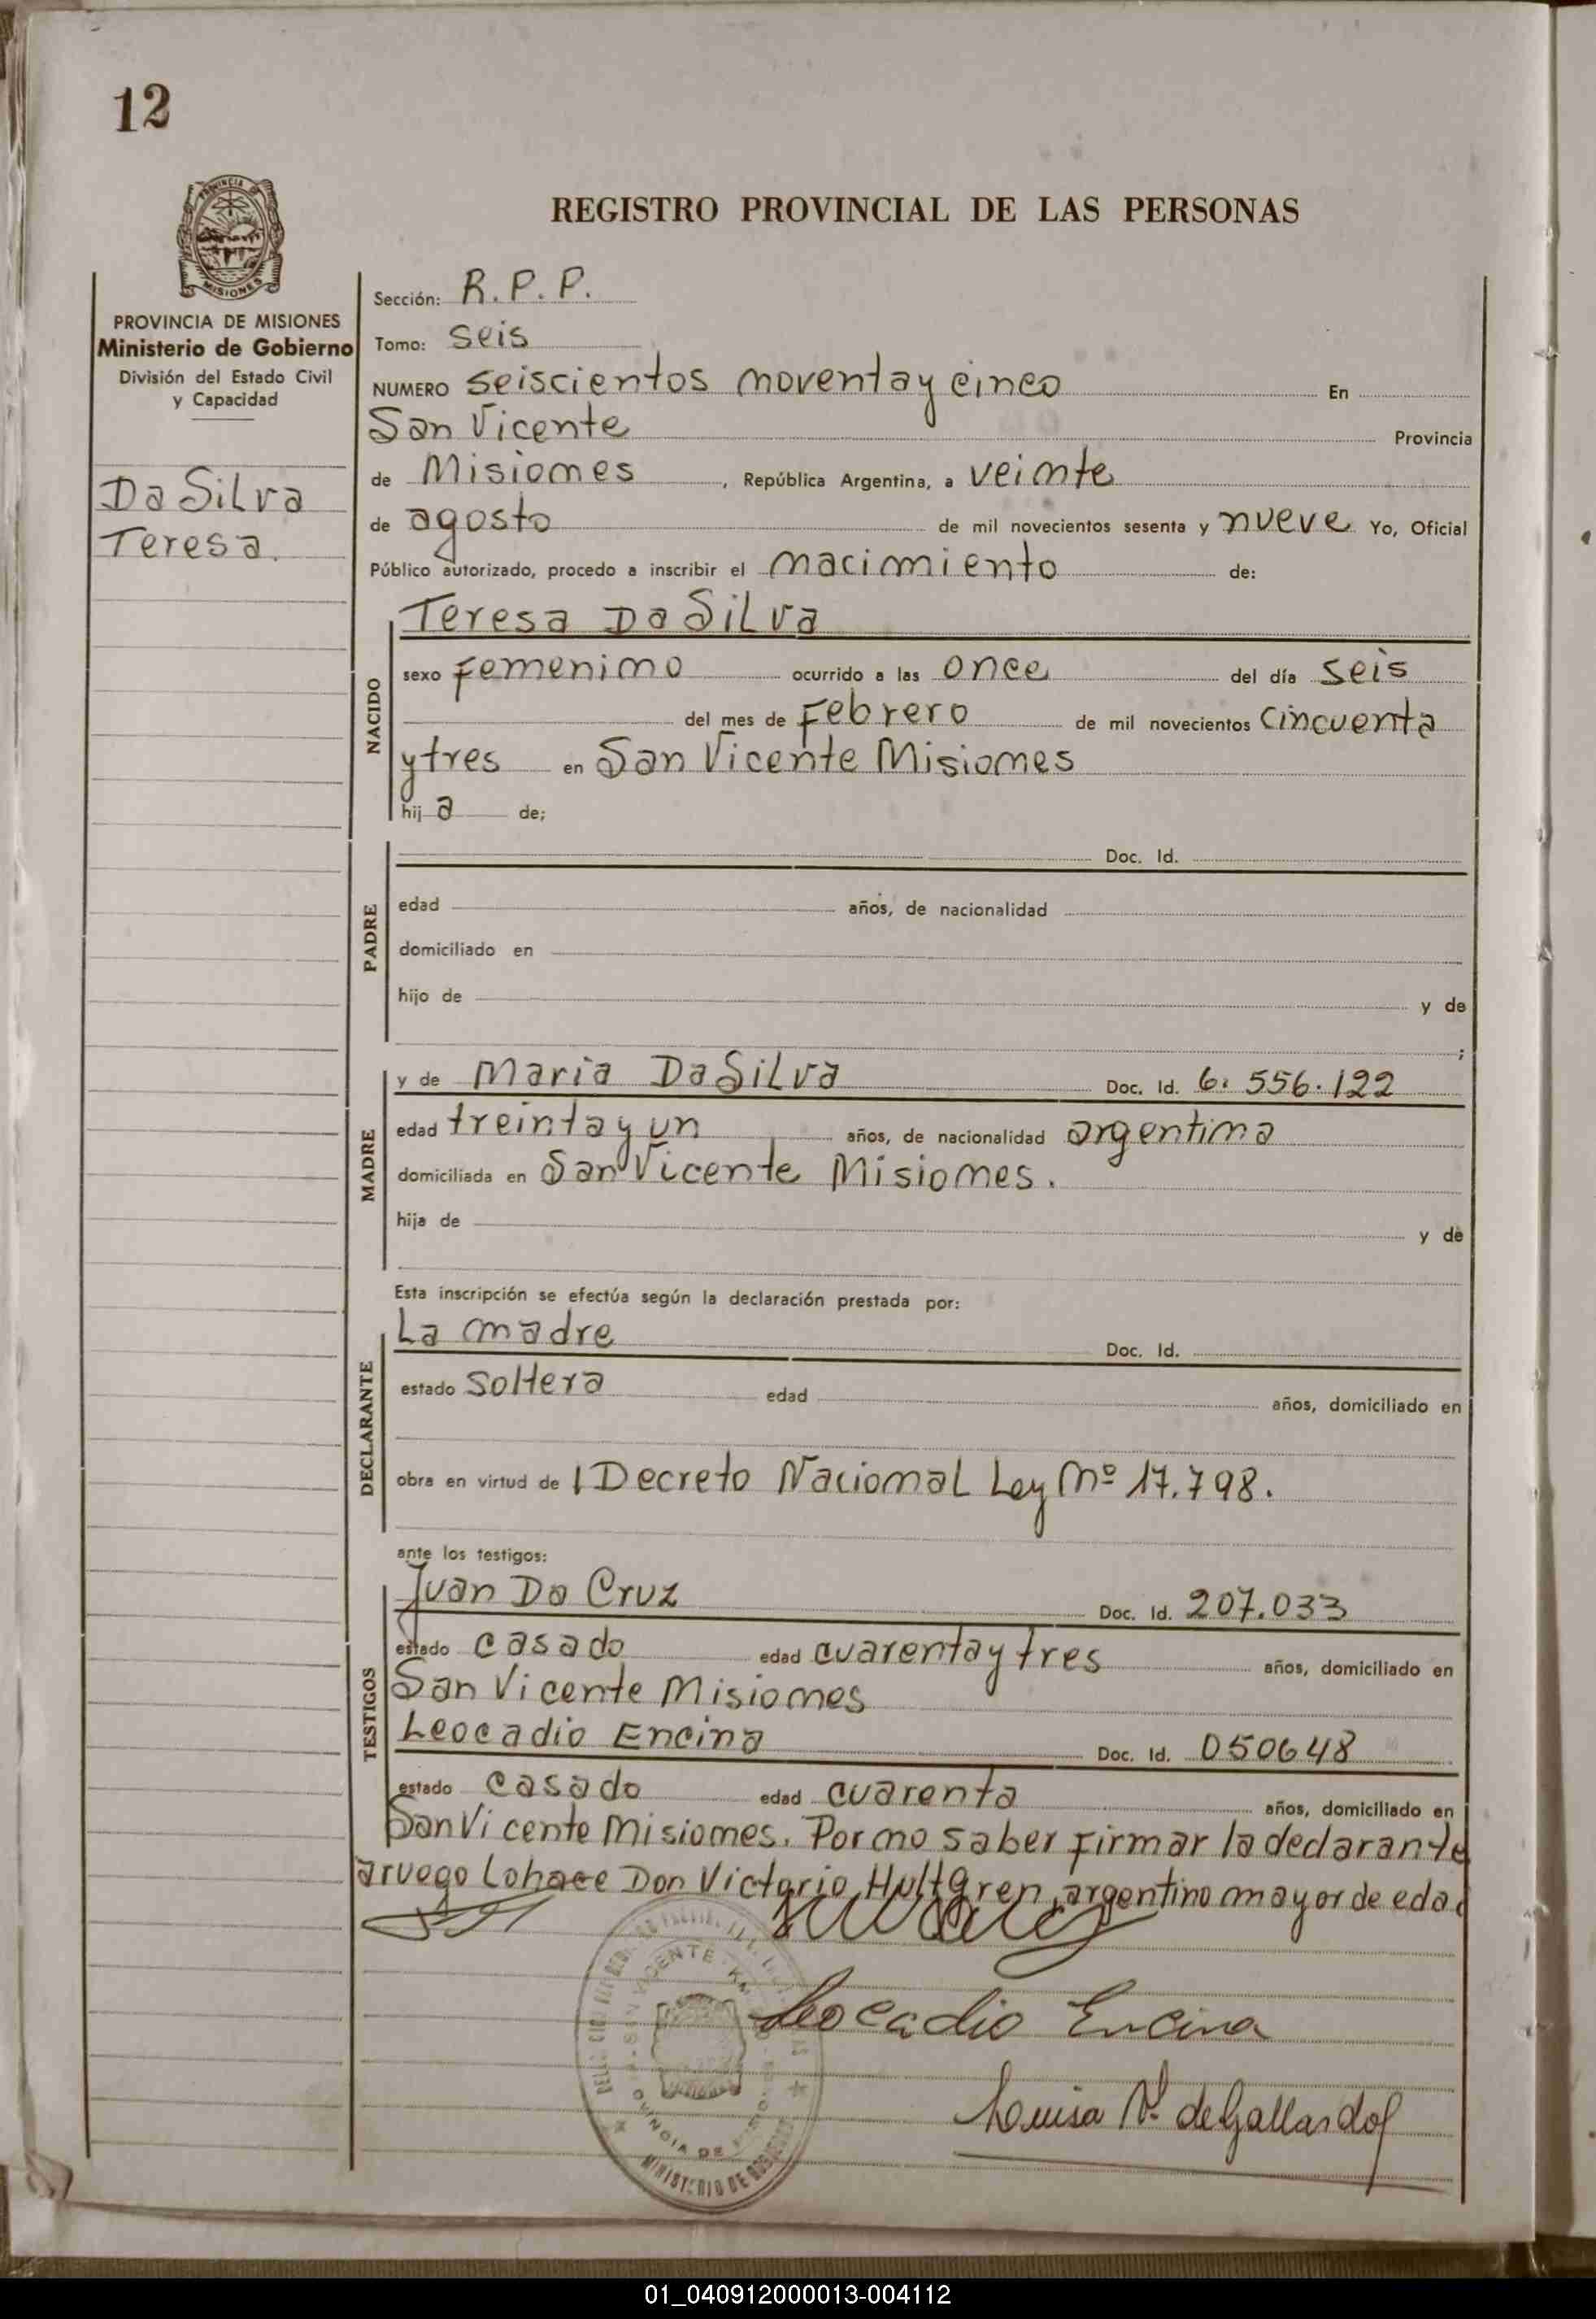 12
REGISTRO PROVINCIAL DE LAS PERSONAS
MISIONES
PROVINCIA DE MISIONES
Ministerio de Gobierno
División del Estado Civil
y Capacidad
Da Silva
Teresa.
Sección: R. P. P.
Tomo: seis
NUMERO seiscientos noventa y cinco En
San Vicente Provincia
de Misiones, República Argentina, a veinte
de agosto de mil novecientos sesenta y nueve Yo, Oficial
Público autorizado, procedo a inscribir el nacimiento de:
NACIDO
Teresa Da Silva
sexo femenino ocurrido a las once del día seis
del mes de Febrero de mil novecientos cincuenta
y tres en San Vicente Misiones
hija de;
PADRE
Doc. Id.
edad años, de nacionalidad
domiciliado en
hijo de y de
;
MADRE
y de Maria Da Silva Doc. Id. 6. 556.122
edad treinta y un años, de nacionalidad argentina
domiciliada en San Vicente Misiones.
hija de y de
Esta inscripción se efectúa según la declaración prestada por:
DECLARANTE
La madre Doc. Id.
estado soltera edad años, domiciliado en
obra en virtud de l Decreto Nacional Ley Nº 17.798.
ante los testigos:
TESTIGOS
Juan Da Cruz Doc. Id. 207.033
estado casado edad cuarenta y tres años, domiciliado en
San Vicente Misiones
Leocadio Encina Doc. Id. 050648
estado casado edad cuarenta años, domiciliado en
San Vicente Misiones. Por no saber firmar la declarante
a ruego Lo hace Don Victorio Hultgren, argentino mayor de edad
Leocadio Encina
Louisa V. de Gallardo
SAN VICENTE
MINISTERIO DE GOBIERNO
01_040912000013-004112